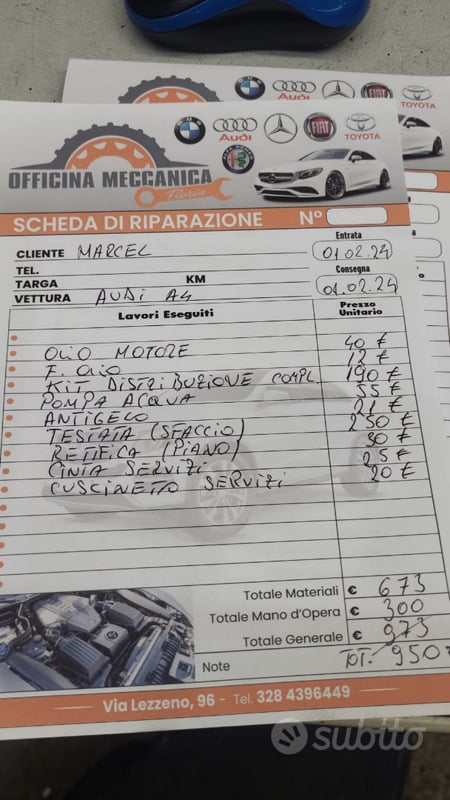 Audi
FIAT
TOYOTA
Audi
FIAT
TOYOTA
OFFICINA MECCANICA
Florin
SCHEDA DI RIPARAZIONE N°
Entrata
CLIENTE MARCEL 01.02.24
TEL.
Consegna
TARGA KM 01.02.24
VETTURA AUDI A4
Lavori Eseguiti Prezzo Unitario
OLIO MOTORE 40 €
F. OLIO 12 €
KIT DISTRIBUZIONE COMPL. 190 €
POMPA ACQUA 55 €
ANTIGELO 21 €
TESTATA (SFACCIO) 250 €
RETIFICA (PIANO) €
CINIA SERVIZI 25 €
CUSCINETO SERVIZI 20 €
Totale Materiali € 673
Totale Mano d'Opera € 300
Totale Generale € 973
Note TOT. 950
Via Lezzeno, 96 - Tel. 328 4396449
subito